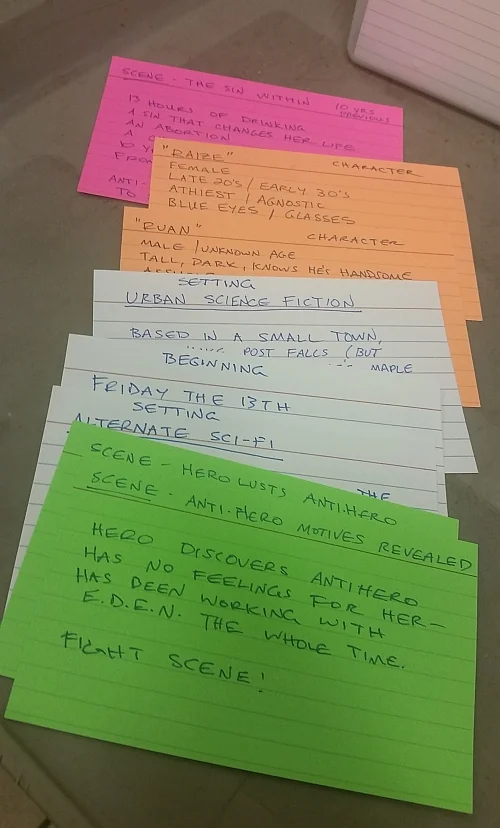 SCENE - THE SIN WITHIN 10 YRS PREVIOUS
13 HOURS OF DRINKING
A SIN THAT CHANGES HER LIFE
AN ABORTION
A
10 Y
FROM
ANTI-
TO
"RAIZE" CHARACTER
FEMALE
LATE 20'S / EARLY 30'S
ATHIEST / AGNOSTIC
BLUE EYES / GLASSES
"RUAN" CHARACTER
MALE / UNKNOWN AGE
TALL, DARK, KNOWS HE'S HANDSOME
SETTING
URBAN SCIENCE FICTION
BASED IN A SMALL TOWN,
POST FALLS (BUT
MAPLE
BEGINNING
FRIDAY THE 13TH
SETTING
ALTERNATE SCI-FI
THE
SCENE - HERO LUSTS ANTI.HERO
SCENE - ANTI-HERO MOTIVES REVEALED
HERO DISCOVERS ANTIHERO
HAS NO FEELINGS FOR HER-
HAS DEEN WORKING WITH
E.D.E.N. THE WHOLE TIME.
FIGHT SCENE!